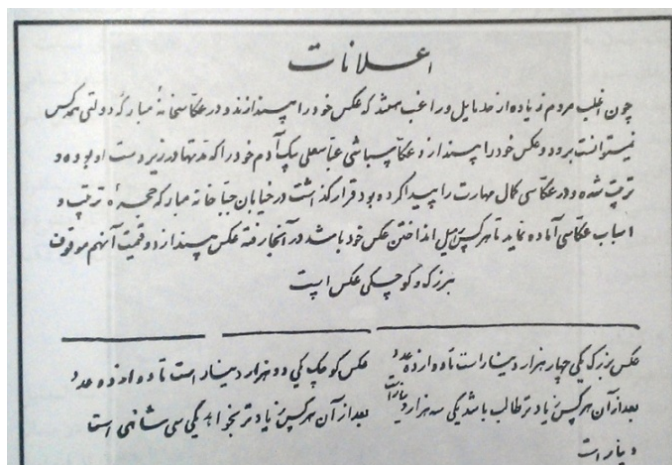 اعلانات
چون اغلب مردم زیاده از حد مایل و راغب هستند که عکس خود را بیندازند و در عکاسخانهٔ مبارکه دولتی همه کس
نمیتوانست برود و عکس خود را بیندازد عکاسباشی عباسعلی بیک آدم خود را که مدتها در زیر دست او بوده و
تربیت شده و در عکاسی کمال مهارت را پیدا کرده بود قرار گذاشت در خیابان جباخانه مبارکه حجرهٔ ترتیب و
اسباب عکاسی آماده نماید تا هر کس میل انداختن عکس خود باشد در آنجا رفته عکس بیندازد و قیمت آنهم موقوف
ببزرگ و کوچکی عکس است
عکس بزرگ یکی چهار هزار دینار است تا دوازده عدد
بعد از آن هر کس زیادتر طالب باشد یکی سه هزار دینار است
عکس کوچک یکی دو هزار دینار است تا دوازده عدد
بعد از آن هر کس زیادتر بخواهد یکی سی شاهی است
دینار است